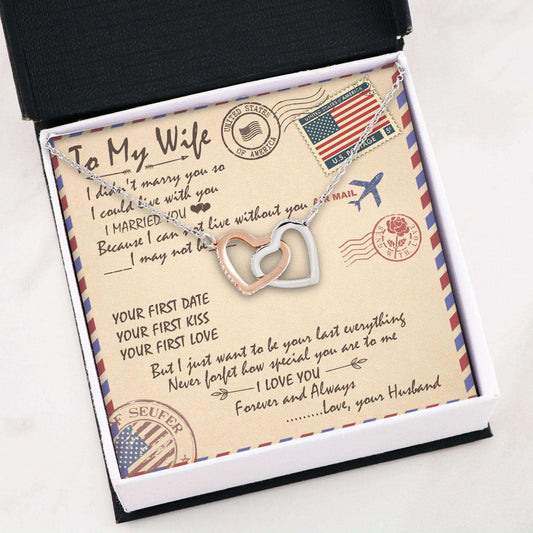 To My Wife
UNITED STATES
OF AMERICA
UNITED STATES OF AMERICA
U.S. POSTAGE 5¢
I didn't marry you so
I could live with you
I MARRIED YOU
AIR MAIL
Because I can not live without you
___I may not be
SEND WITH LOVE
YOUR FIRST DATE
YOUR FIRST KISS
YOUR FIRST LOVE
But I just want to be your last everything
Never forfet how special you are to me
I LOVE YOU
Forever and Always
.........Love, your Husband
F SEUFER